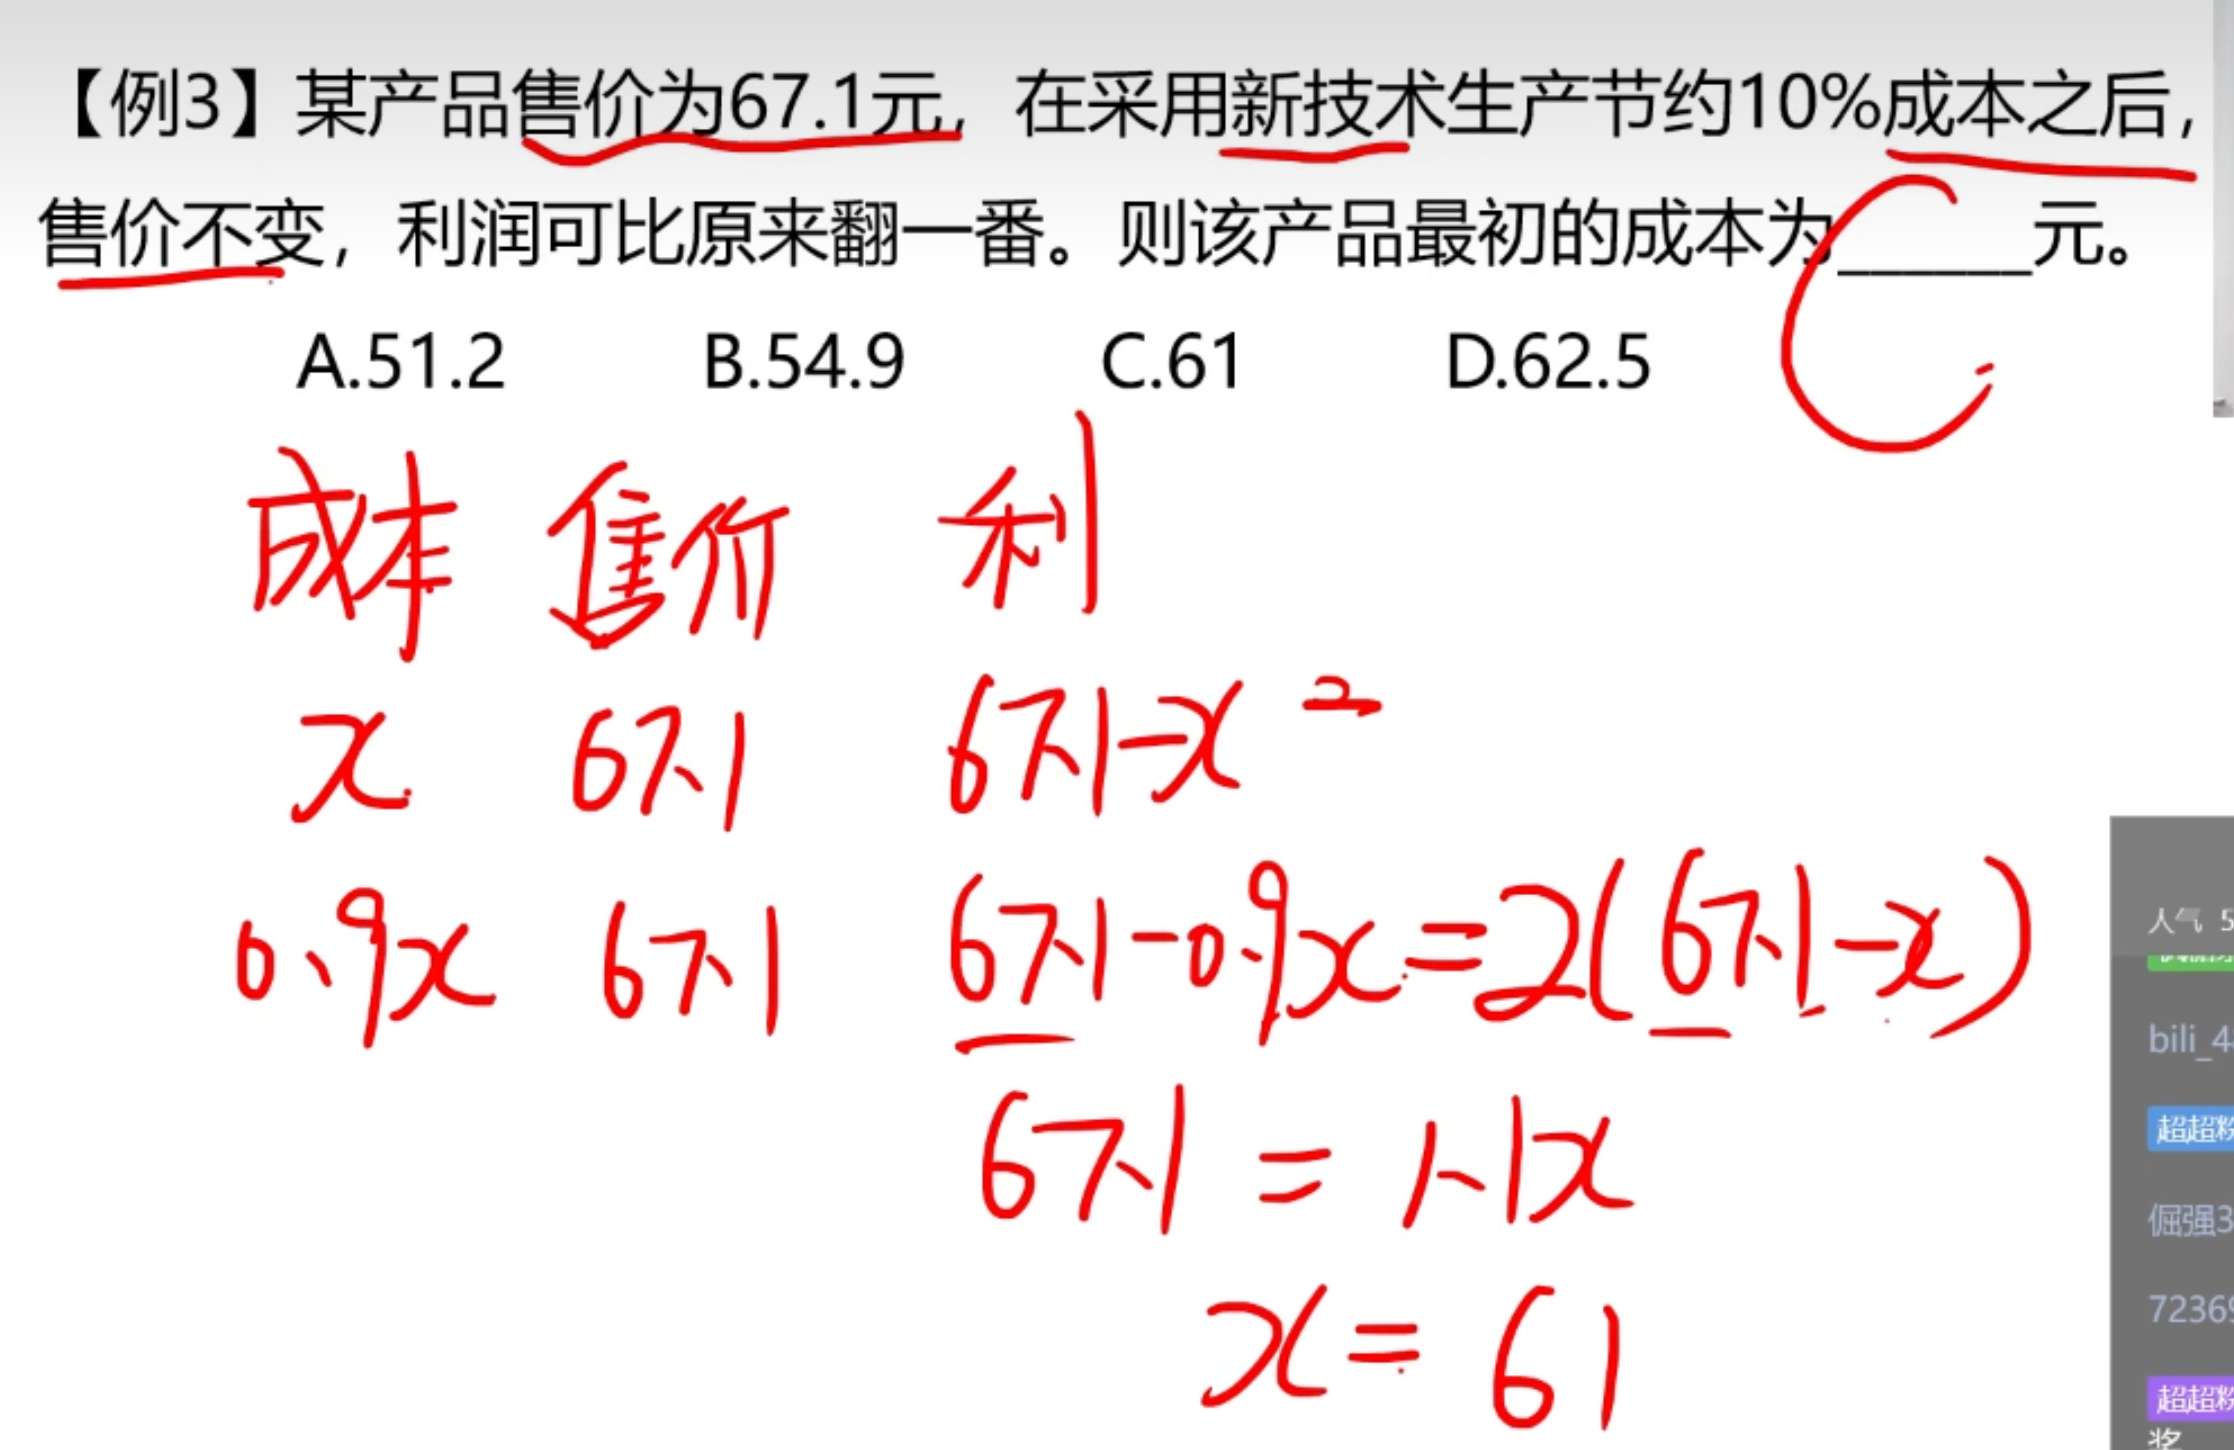 【例3】某产品售价为67.1元，在采用新技术生产节约10%成本之后，
售价不变，利润可比原来翻一番。则该产品最初的成本为______元。
A.51.2 B.54.9 C.61 D.62.5
成本 售价 利
x 67.1 67.1-x 2
0.9x 67.1 67.1-0.9x=2(67.1-x)
67.1=1.1x
x=61
人气 5
bili_4
超超粉
倔强3
7236
超超粉
奖